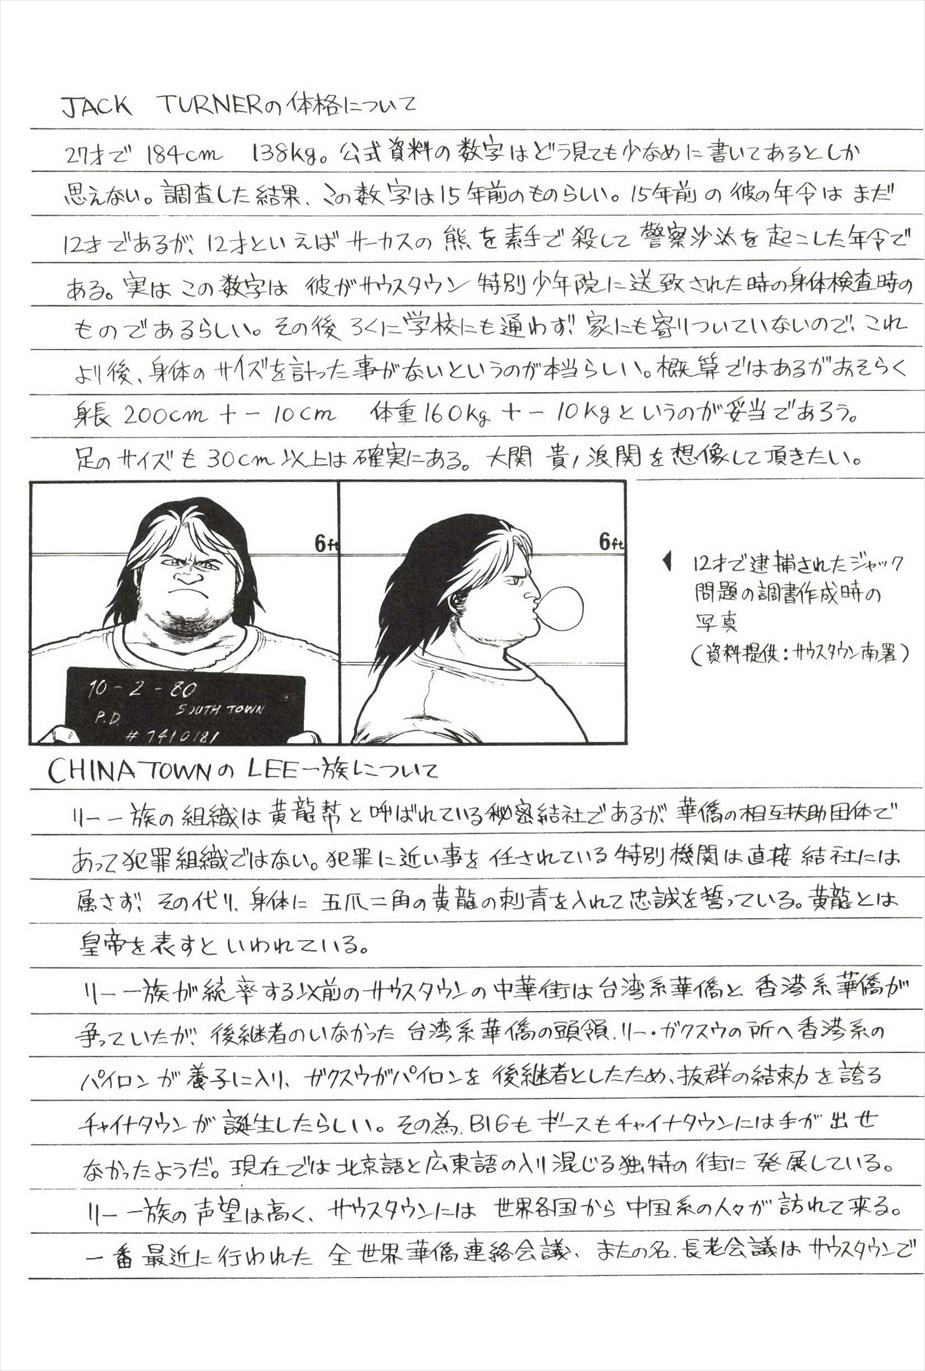 JACK TURNERの体格について
27才で 184cm 138kg。公式資料の数字はどう見ても少なめに書いてあるとしか
思えない。調査した結果、この数字は15年前のものらしい。15年前の彼の年令はまだ
12才であるが、12才といえばサーカスの熊を素手で殺して警察沙汰を起こした年令で
ある。実はこの数字は 彼がサウスタウン特別少年院に送致された時の身体検査時の
ものであるらしい。その後ろくに学校にも通わず、家にも寄りついていないので、これ
より後、身体のサイズを計った事がないというのが本当らしい。概算ではあるがおそらく
身長 200cm +- 10cm 体重160kg +- 10kgというのが妥当であろう。
足のサイズも30cm以上は確実にある。大関 貴ノ浪関を想像して頂きたい。
6ft
6ft
10-2-80
SOUTH TOWN
P.D.
#7410181
◀ 12才で逮捕されたジャック
問題の調書作成時の
写真
(資料提供:サウスタウン南署)
CHINA TOWNの LEE一族について
リー一族の組織は黄龍幇と呼ばれている秘密結社であるが、華僑の相互扶助団体で
あって犯罪組織ではない。犯罪に近い事を任されている特別機関は直接結社には
属さず、その代り、身体に 五爪二角の黄龍の刺青を入れて忠誠を誓っている。黄龍とは
皇帝を表すといわれている。
リー一族が統率する以前のサウスタウンの中華街は台湾系華僑と香港系華僑が
争っていたが、後継者のいなかった台湾系華僑の頭領、リー・ガクスウの所へ香港系の
パイロンが養子に入り、ガクスウがパイロンを後継者としたため、抜群の結束力を誇る
チャイナタウンが誕生したらしい。その為、BIGもギースもチャイナタウンには手が出せ
なかったようだ。現在では北京語と広東語の入り混じる独特の街に発展している。
リー一族の声望は高く、サウスタウンには 世界各国から中国系の人々が訪れて来る。
一番最近に行われた 全世界華僑連絡会議、またの名、長老会議はサウスタウンで